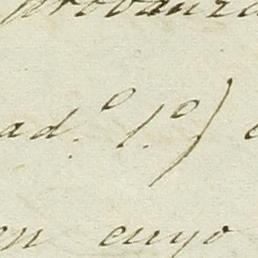 probanza
ad.º 1.º)
en cuyo